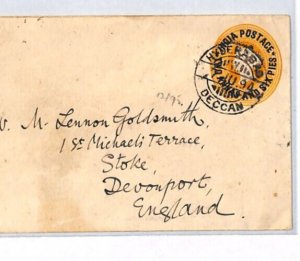 INDIA POSTAGE
TWO ANNAS AND SIX PIES
HYDERABAD
DECCAN
M. Lennon Goldsmith,
1 St. Michael's Terrace,
Stoke,
Devonport,
England.